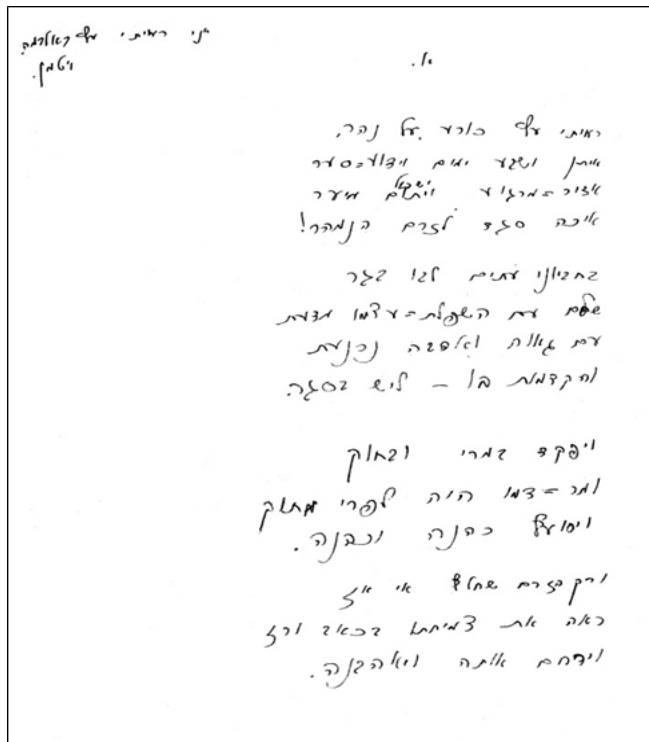 אני ראיתי עץ באלבמה
ויטמן.
א.
ראיתי עץ כורע על נהר,
איתן ושבע ימים וידוע=סער
אזור=מרגוע וישקול מיער
איכה סגד לזרם הנמהר!
בחביוני עתים לבו בגר
שלם עם השפלת=עצמו מדעת
עם גאוה ואהבה נכנעת
והקדמות בו – ליש בסגר.
ויפקד במרי ובחוק
ומר=דמו היה לפרי מתוק
כהנה וכהנה.
ורק בזרם שחלף אי אז
ראה את צמיחתו בכאב ורז
וירחם אותה ויאהבנה.